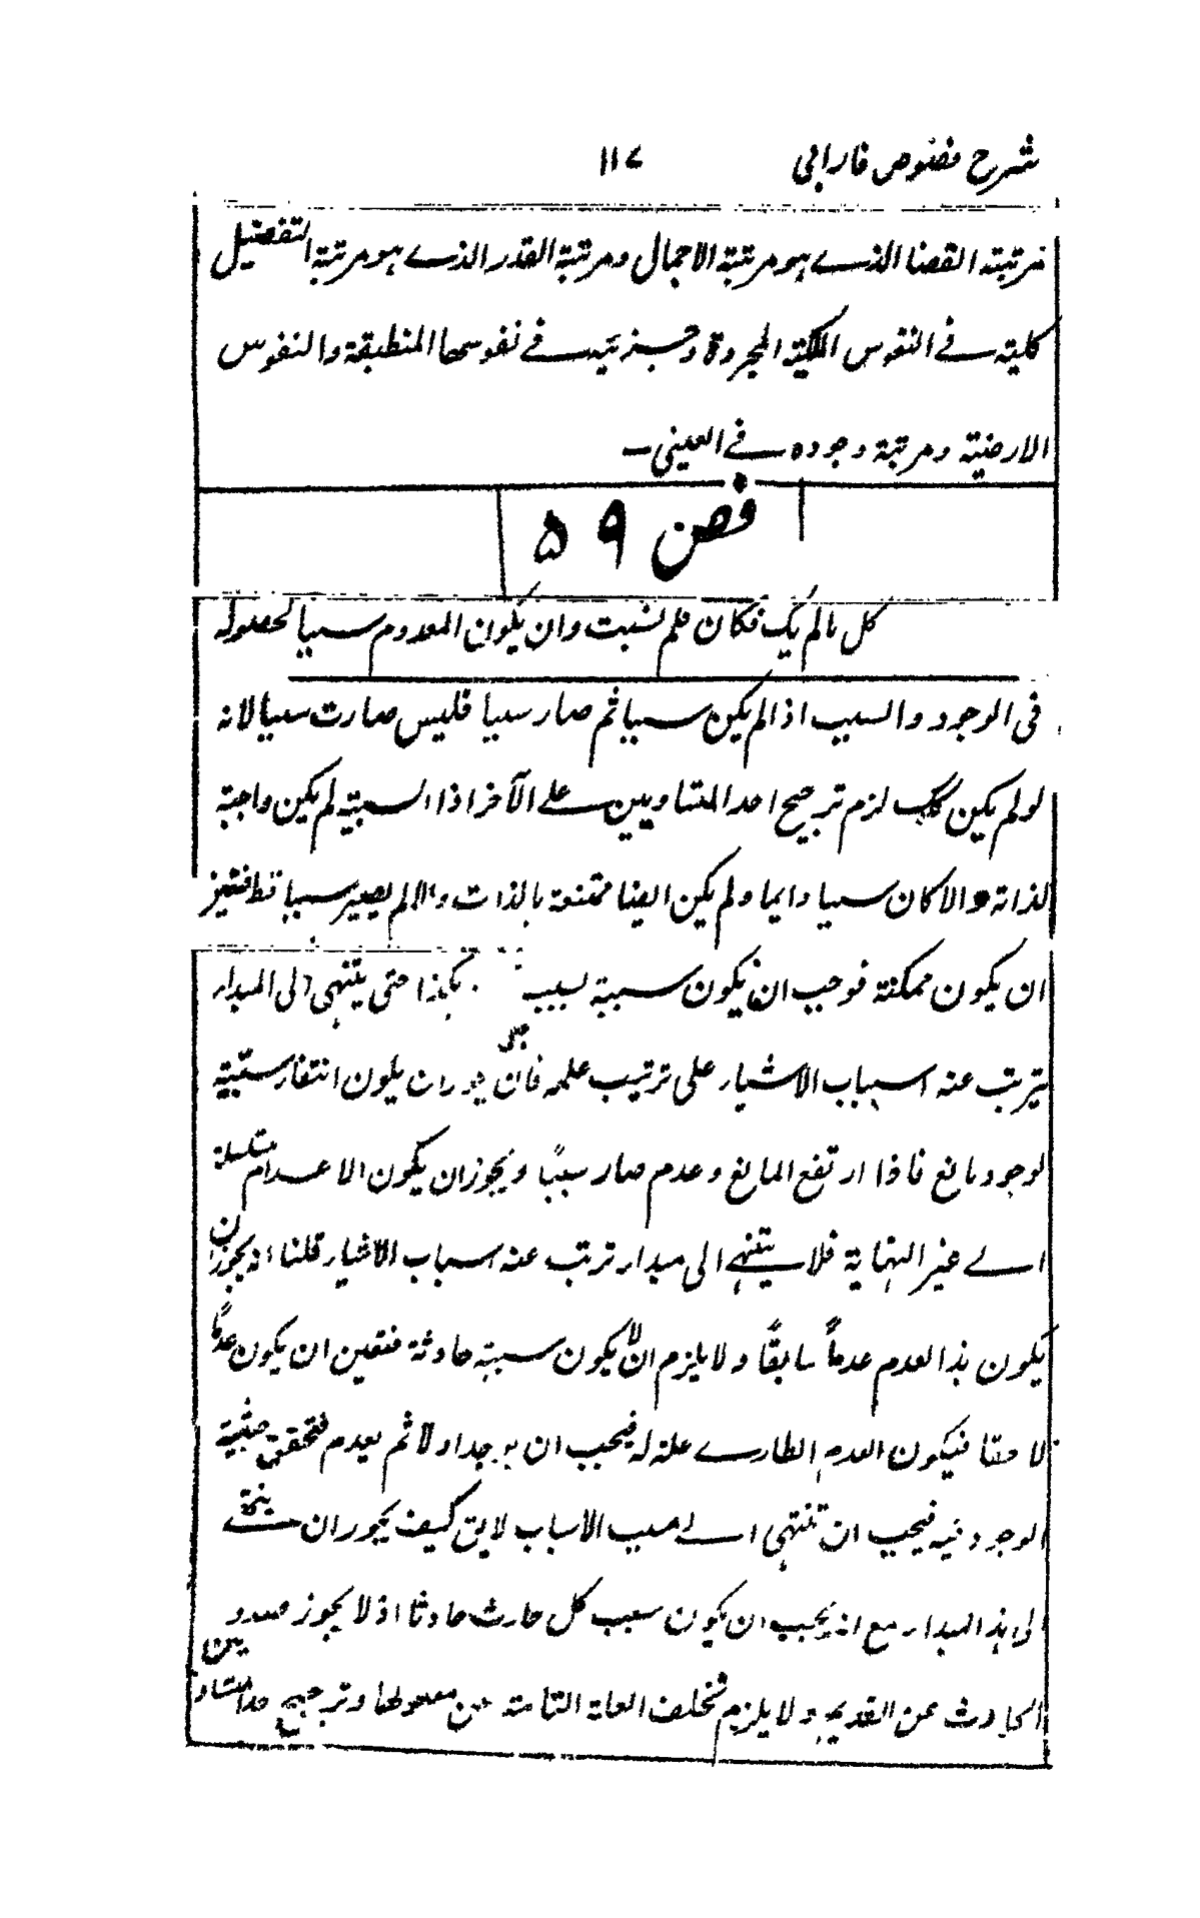 شرح فصوص فارابی ۱۱۷
مرتبته القضا الذے ہو مرتبة الاجمال ومرتبة القدر الذے ہو مرتبة التفصیل
کلیته فے النفوس الفلکیة المجردة وجزئیة فے نفوسها المنطبقة والنفوس
الارضیة ومرتبة وجوده فے العینی۔
فص ۵۹
کل مالم یک فکان فلم سبب وان یکون المعدوم سببا لحصوله
فی الوجود والسبب اذا لم یکن سببا ثم صار سببا فلیس صارت سببا لانه
لو لم یکن کک لزم ترجیح احد المتساویین علے الآخر اذا السببیة لم یکن واجبة
لذاته والا کان سببا دایما ولم یکن ایضا ممتنعة بالذات والا لم یصیر سببا قط
ان یکون ممکنة فوجب ان یکون سببیة لسبب ہکذا حتی ینتهی الی المبدار
یترتب عنه اسباب الاشیار علی ترتیب علمه فان یجوز ان یکون انتفار سببیة
لوجود مانع فاذا ارتفع المانع وعدم صار سببًا ویجوز ان یکون الاعدام متسلسلة
اے غیر النهایة فلا ینتهے الی مبدار ترتب عنه اسباب الاشیار قلنا انه یجوز ان
یکون ہذا العدم عدماً سابقًا ولا یلزم ان لا یکون سببیة حادثة فتعین ان یکون عدمًا
لاحقا فیکون العدم الطارے علة له فیجب ان یوجد اولا ثم یعدم فتحقق
الوجود فیه فیجب ان تنتهی اے سبب الاسباب لایق کیف یجوز ان ینتهے
الی ہذا المبدار مع انه یجب ان یکون سبب کل حادث حادثا اذ لا یجوز صدور
الحادث عن القدیم ولا یلزم تخلف العلة التامة عن معلولها وترجیح احد المتساویین